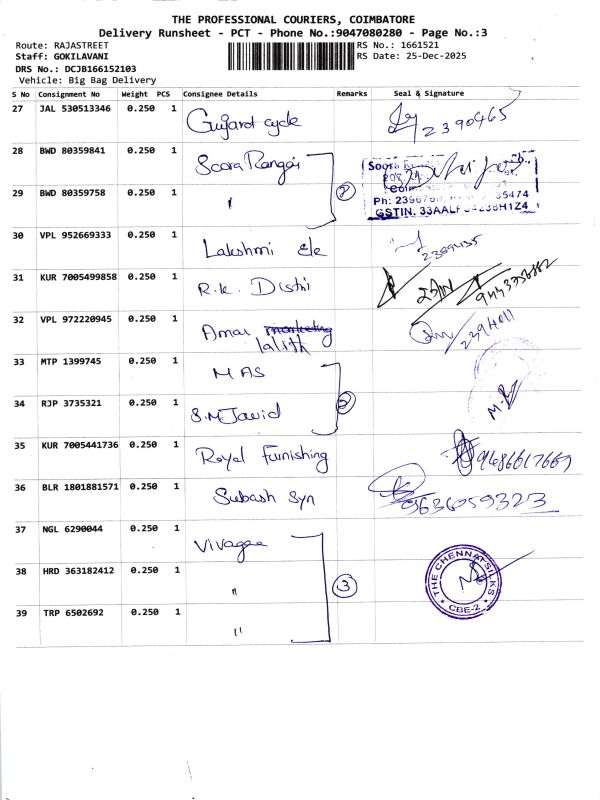 THE PROFESSIONAL COURIERS, COIMBATORE
Delivery Runsheet - PCT - Phone No.:9047080280 - Page No.:3
Route: RAJASTREET
RS No.: 1661521
Staff: GOKILAVANI
RS Date: 25-Dec-2025
DRS No.: DCJB166152103
Vehicle: Big Bag Delivery
S No Consignment No Weight PCS Consignee Details Remarks Seal & Signature
27 JAL 530513346 0.250 1 Gujarat cycle 2390465
28 BWD 80359841 0.250 1 Soora Rangai
29 BWD 80359758 0.250 1 " 2
Soora
Ph:
GSTIN:
30 VPL 952669333 0.250 1 Lakshmi Ele
31 KUR 7005499858 0.250 1 R.K. Disti
32 VPL 972220945 0.250 1 Amar marketing
lalith
33 MTP 1399745 0.250 1 MAS
34 RJP 3735321 0.250 1 S.M Javid 2
35 KUR 7005441736 0.250 1 Royal Furnishing 9486617669
36 BLR 1801881571 0.250 1 Subash Syn 9636059323
37 NGL 6290044 0.250 1 Vivagaa
38 HRD 363182412 0.250 1 " 3
THE CHENNAI SILKS
CBE-2
39 TRP 6502692 0.250 1 "